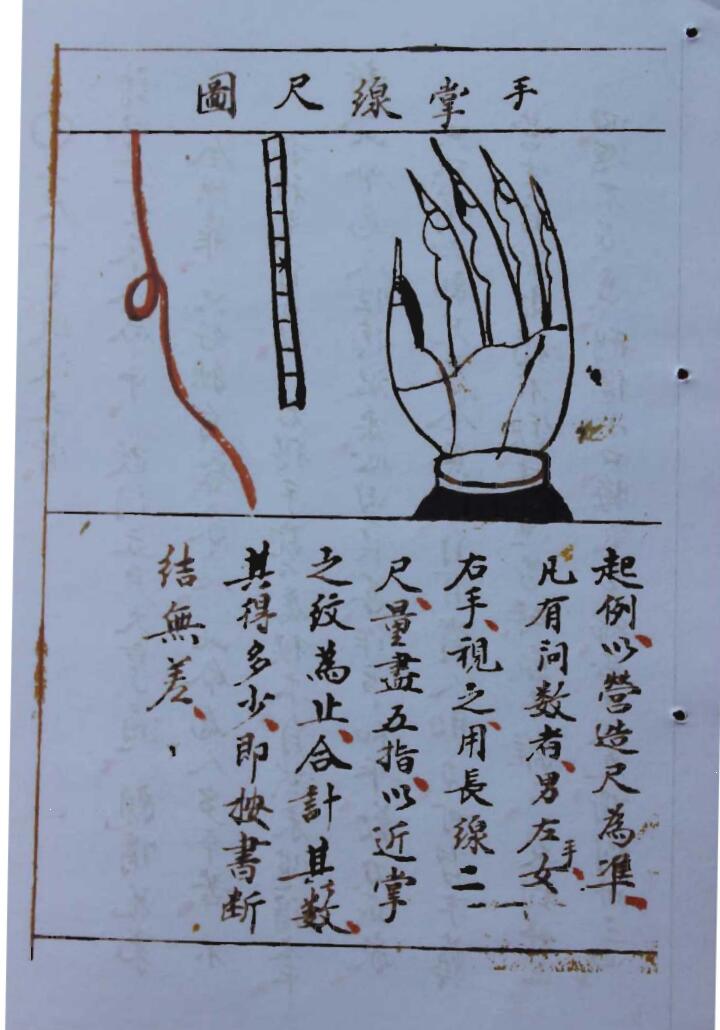 手掌線尺圖
起例、以營造尺為準、
凡有问数者、男左手女
右手、視之、用長線二
尺、量盡五指、以近掌
之纹為止、合計其数、
其得多少、即按書断
結無差、